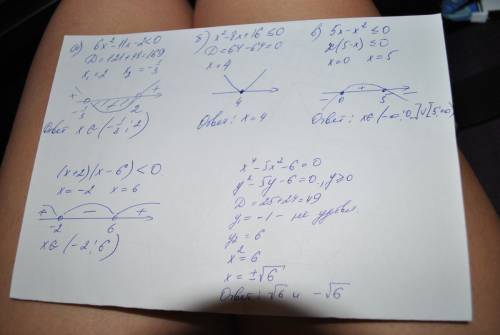 а) 6x² - 11x - 2 < 0
D = 121 + 48 = 169
x₁ = 2   x₂ = -1/3
+ -1/3 - 2 +
Ответ x∈(-1/3; 2)
б) x² - 8x + 16 ≤ 0
D = 64 - 64 = 0
x = 4
4
Ответ: x = 4
в) 5x - x² ≤ 0
x(5-x) ≤ 0
x = 0   x = 5
- 0 + 5 -
Ответ: x∈(-∞; 0]∪[5; +∞)
(x+2)(x-6) < 0
x = -2   x = 6
+ - +
-2 6
x∈(-2; 6)
x⁴ - 5x² - 6 = 0
y² - 5y - 6 = 0, y≥0
D = 25 + 24 = 49
y₁ = -1 - не удовл.
y₂ = 6
x² = 6
x = ±√6
Ответ: √6 и -√6